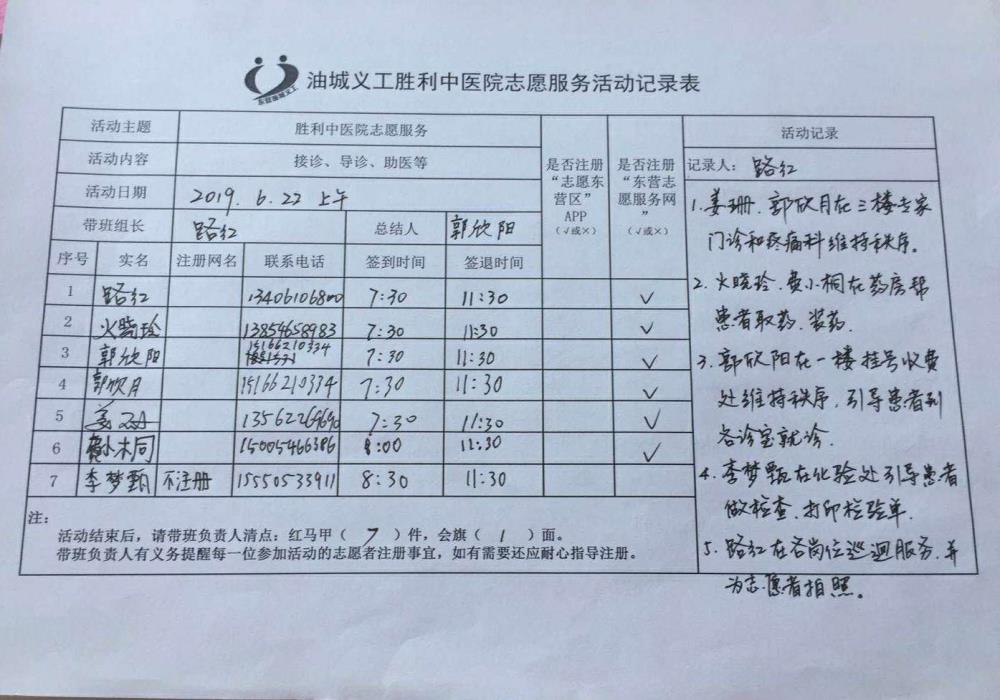 东营油城义工
油城义工胜利中医院志愿服务活动记录表
活动主题 胜利中医院志愿服务
活动内容 接诊、导诊、助医等
活动日期 2019.6.22 上午
带班组长 路红 总结人 郭欣阳
是否注册“志愿东营区”APP（√或×）
是否注册“东营志愿服务网”（√或×）
序号 实名 注册网名 联系电话 签到时间 签退时间
1 路红 13406106800 7:30 11:30 √
2 火晓玲 13854658983 7:30 11:30 √
3 郭欣阳 15166210334 7:30 11:30 √
4 郭欣月 15166210334 7:30 11:30 √
5 姜珊 7:30 11:30 √
6 小桐 15005466386 8:00 11:30 √
7 李梦甄 不注册 15550533911 8:30 11:30
注：
活动结束后，请带班负责人清点：红马甲（ 7 ）件，会旗（ 1 ）面。
带班负责人有义务提醒每一位参加活动的志愿者注册事宜，如有需要还应耐心指导注册。
活动记录
记录人： 路红
1.姜珊、郭欣月在三楼专家
门诊和疼痛科维持秩序。
2.火晓玲、费小桐在药房帮
患者取药、装药.
3.郭欣阳在一楼挂号收费
处维持秩序，引导患者到
各诊室就诊.
4.李梦甄在化验处引导患者
做检查、打印检验单.
5.路红在各岗位巡迴服务，并
为志愿者拍照。